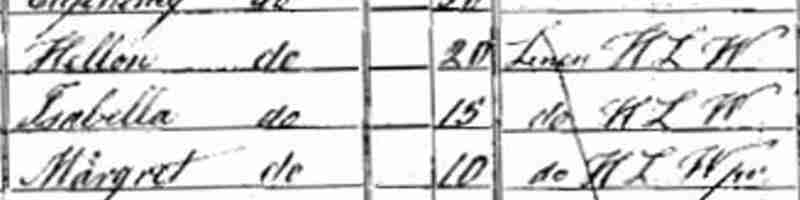 do 20
Hellon do 20 Linen H L W
Isabella do 15 do H L W
Margret do 10 do H L W